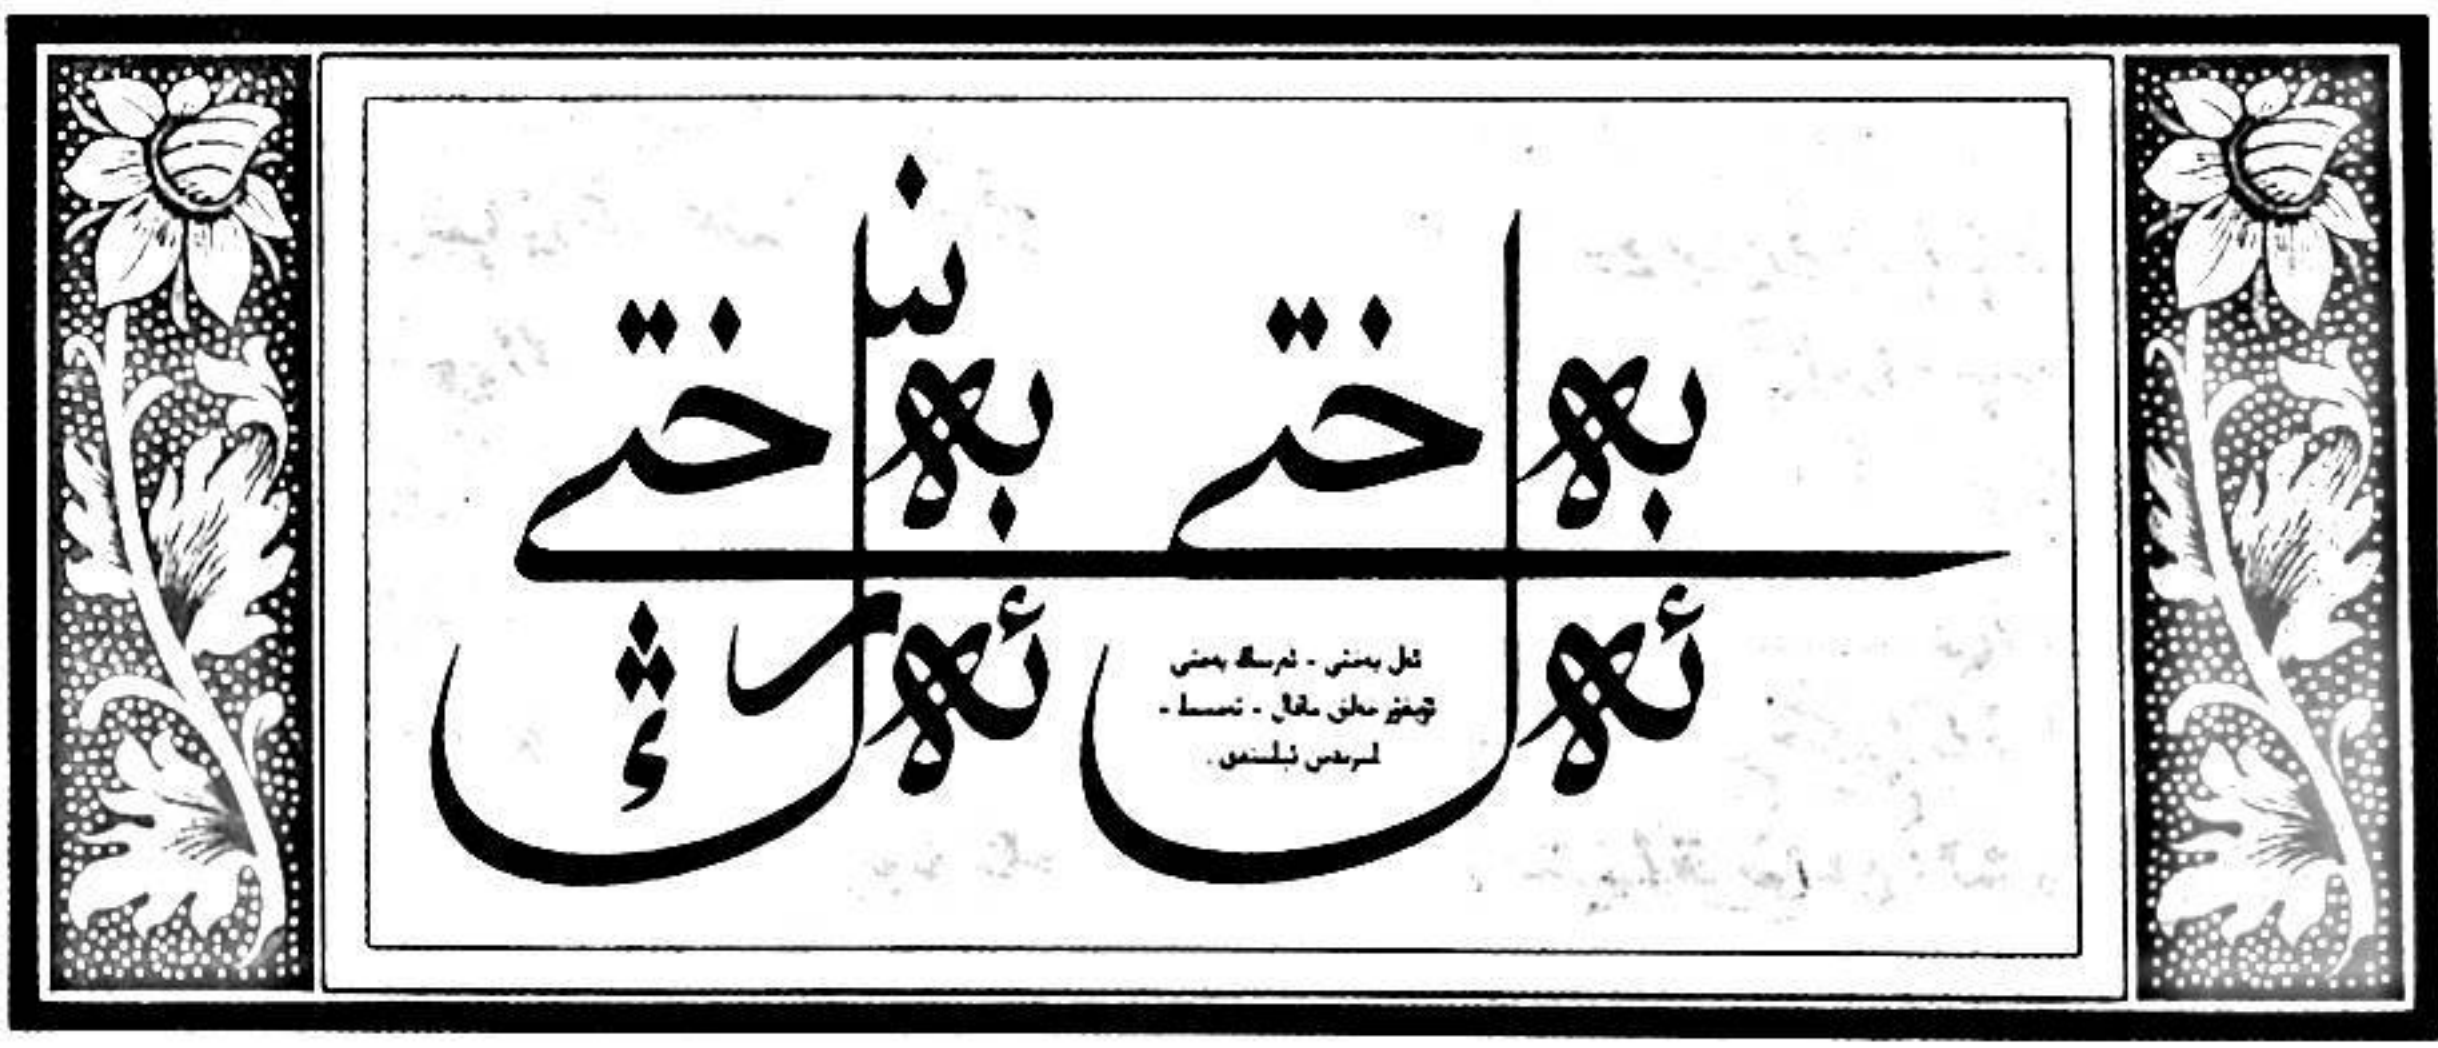 ئەل بەختى ئەرنىڭ بەختى
ئەل بەختى - ئەرنىڭ بەختى
ئۇيغۇر خەلق ماقال - تەمسىل -
لىرىدىن ئېلىندى .